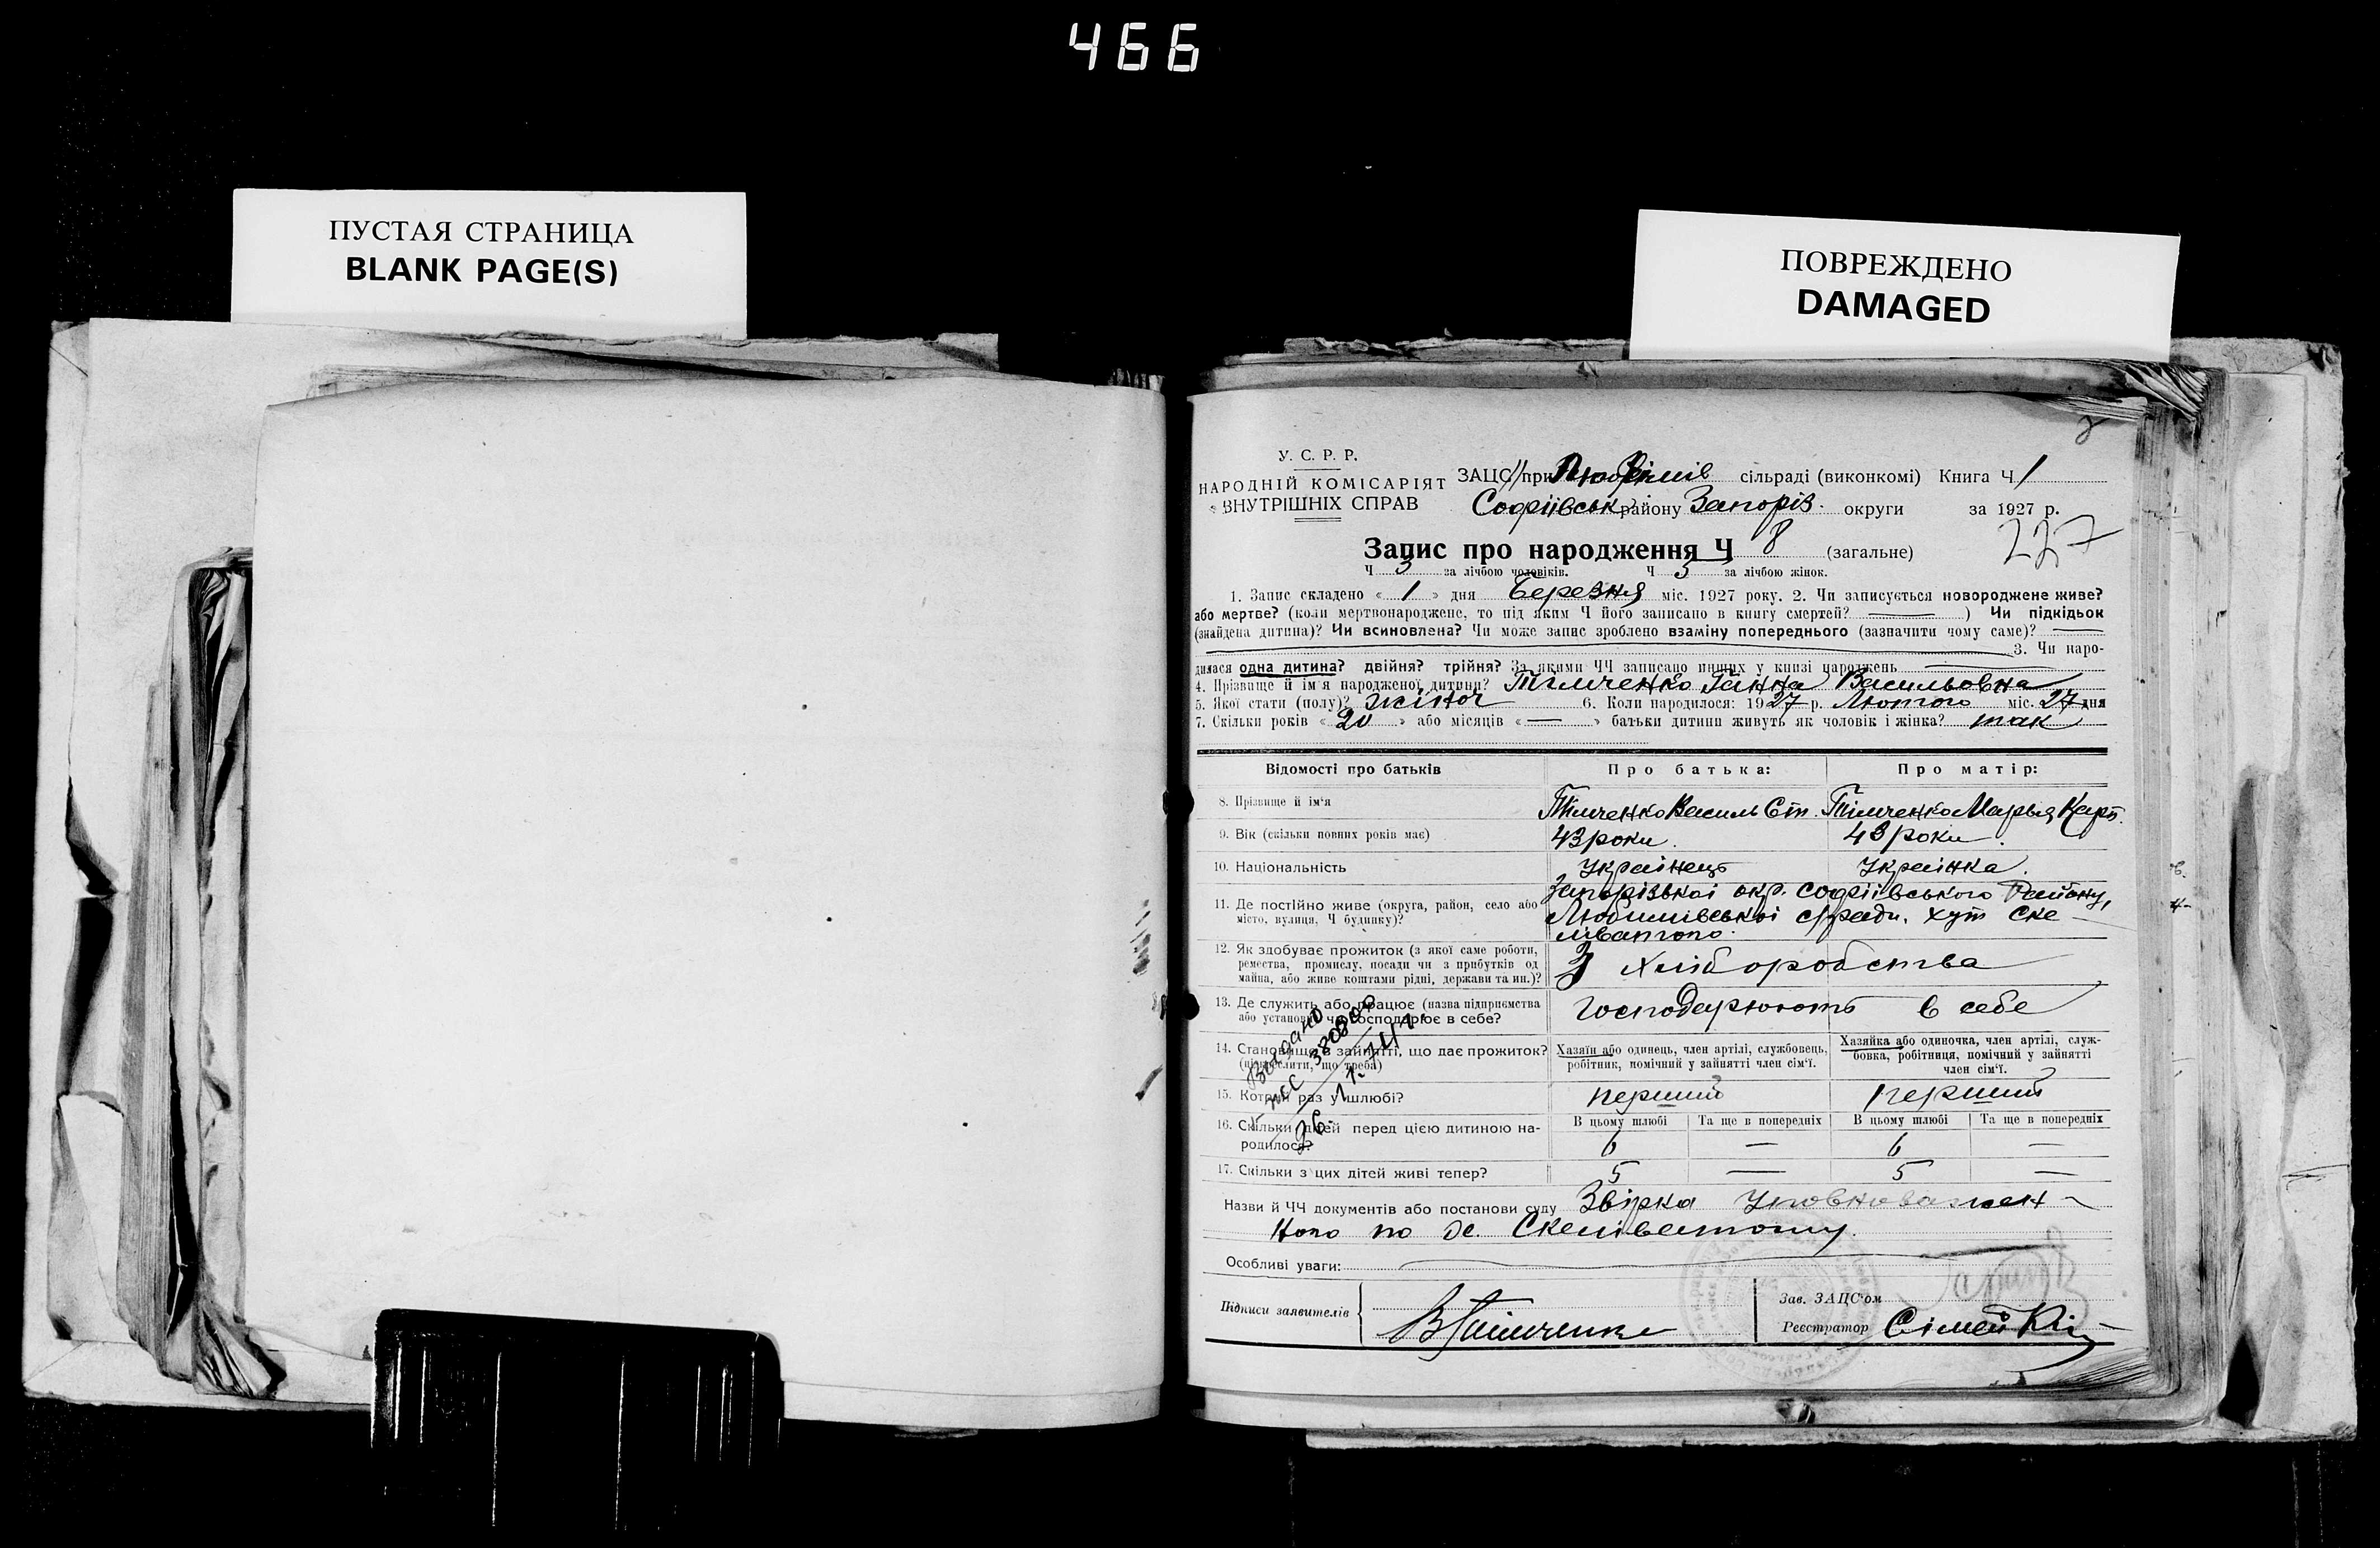 466
ПУСТАЯ СТРАНИЦА
BLANK PAGE(S)
ПОВРЕЖДЕНО
DAMAGED
У. С. Р. Р.
НАРОДНІЙ КОМІСАРІЯТ
ВНУТРІШНІХ СПРАВ
ЗАЦС при сільраді (виконкомі) Книга Ч 1
Софіївськ району Запоріз. округи за 1927 р.
227
Запис про народження Ч 8 (загальне)
Ч 3 за лічбою чоловіків. Ч 5 за лічбою жінок.
1. Запис складено « 1 » дня березня міс. 1927 року. 2. Чи записується новороджене живе?
або мертве? (коли мертвонароджене, то під яким Ч його записано в книгу смертей? — ) Чи підкідьок
(знайдена дитина)? Чи всиновлена? Чи може запис зроблено взаміну попереднього (зазначити чому саме)? —
3. Чи наро-
дилася одна дитина? двійня? трійня? За якими ЧЧ записано инших у книзі народжень
4. Прізвище й ім'я народженої дитини? Тімченко Ганна Васильовна
5. Якої стати (полу)? жіноч 6. Коли народилося: 1927 р. Лютого міс. 27 дня
7. Скільки років « 20 » або місяців « — » батьки дитини живуть як чоловік і жінка? так
Відомості про батьків Про батька: Про матір:
8. Прізвище й ім'я Тімченко Василь Ст. Тімченко Марья Карп.
9. Вік (скільки повних років має) 43 роки. 43 роки.
10. Національність Українець Українка.
11. Де постійно живе (округа, район, село або місто, вулиця, Ч будинку)? Запорізької окр. Софіївського Району,
Любимівської с/ради. хут Ске-
ліватого.
12. Як здобуває прожиток (з якої саме роботи,
ремества, промислу, посади чи з прибутків од
майна, або живе коштами рідні, держави та ин.)? З хліборобства
13. Де служить або працює (назва підприємства
або установи) чи господарює в себе? Господарюють в себе
14. Становище в зайнятті, що дає прожиток?
(підкреслити, що треба)
Хазяїн або одинець, член артілі, службовець,
робітник, помічний у зайнятті член сім'ї.
Хазяйка або одиночка, член артілі, служ-
бовка, робітниця, помічний у зайнятті
член сім'ї.
15. Котрий раз у шлюбі? перший перший
16. Скільки дітей перед цією дитиною на-
родилося?
В цьому шлюбі Та ще в попередніх В цьому шлюбі Та ще в попередніх
6 — 6 —
17. Скільки з цих дітей живі тепер? 5 — 5 —
Назви й ЧЧ документів або постанови суду Звірка уповноважен-
ного по х. Скеліватому.
Особливі уваги:
Підписи заявителів ВТимченко
Зав. ЗАЦС'ом
Реєстратор